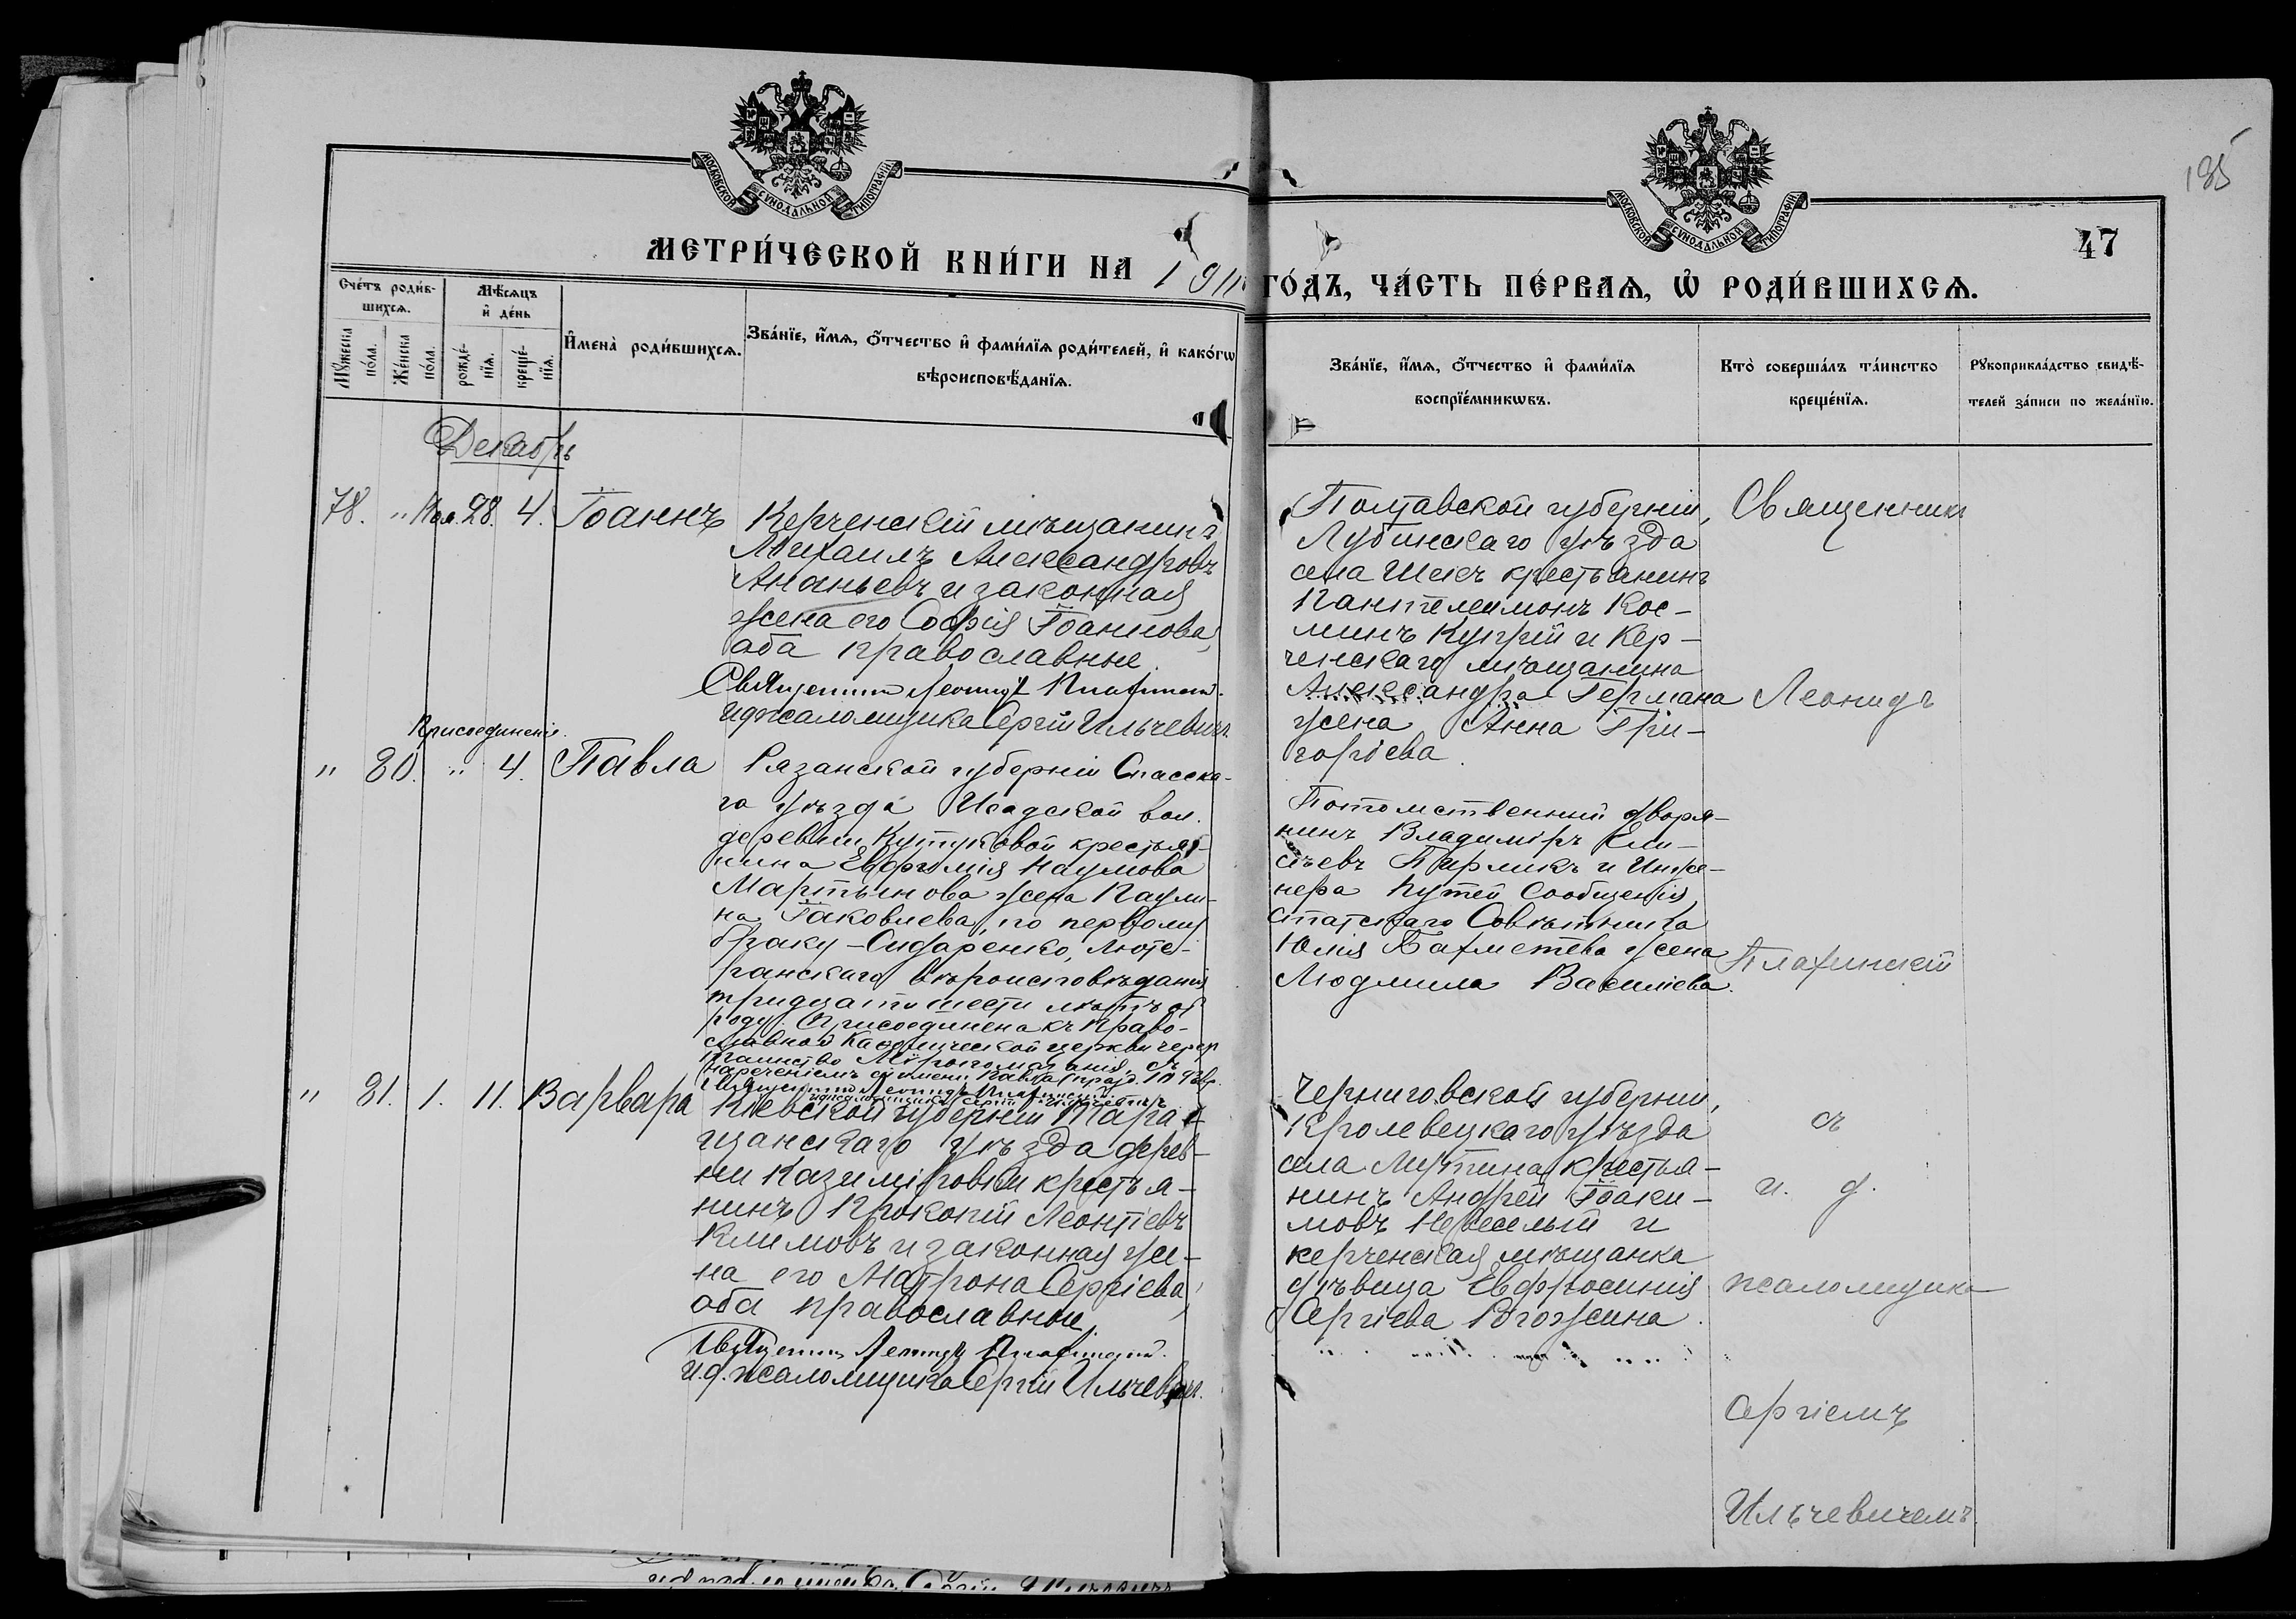 МОСКОВСКОЙ СѴНОДАЛЬНОЙ ТИПОГРАФІИ
МОСКОВСКОЙ СѴНОДАЛЬНОЙ ТИПОГРАФІИ
185
47
МЕТРИ́ЧЕСКОЙ КНИ́ГИ НА 1911 ГО́ДЪ, ЧА́СТЬ ПЕ́РВАѦ, Ѡ҆ РОДИ́ВШИХСѦ.
Сче́тъ роди́в-
шихсѧ.
Мꙋ́жеска по́ла.
Же́нска по́ла.
Мѣ́сѧцъ
и҆ де́нь
рожде́-
нїѧ.
креще́-
нїѧ.
И҆мена̀ роди́вшихсѧ.
Зва́нїе, и҆́мѧ, ѻ҆́тчество и҆ фами́лїѧ роди́телей, и҆ како́гѡ
вѣроисповѣ́данїѧ.
Зва́нїе, и҆́мѧ, ѻ҆́тчество и҆ фами́лїѧ
воспрїе́мникѡвъ.
Кто̀ соверша́лъ та́инство
креще́нїѧ.
Рꙋкоприкла́дство свидѣ́-
телей за́писи по жела́нїю.
Декабрь
78. " Ноя. 28. 4. Іоаннъ
Керченскій мѣщанинъ
Михаилъ Александровъ
Ананьевъ и законная
жена его Софія Іоаннова,
оба православные.
Священникъ Леонидъ Плахинскій.
и д псаломщика Сергій Ильчевичъ.
Полтавской губерніи,
Лубенскаго уѣзда
села Шекъ крестьянинъ
Пантелеимонъ Кос-
минъ Купрій и Кер-
ченскаго мѣщанина
Александра Германа
жена Анна Гри-
горіева.
Присоединеніе.
" 80. " 4. Павла
Рязанской губерніи Спасска-
го уѣзда Исадской вол.
деревни Кутуковой крестья-
нина Евфимія Наумова
Мартынова жена Паули-
на Іаковлева, по первому
браку - Сидаренко, Люте-
ранскаго вѣроисповѣданія
тридцати шести лѣтъ отъ
роду. Присоединена къ Право-
славной Каѳолической церкви черезъ
таинство Мѵропомазанія, съ
нареченіемъ ей имени Павла (празд. 10 Февр.
Священникъ Леонидъ Плахинскій
и д псаломщика Сергій Ильчевичъ
Потомственный дворя-
нинъ Владиміръ Ели-
сѣевъ Пирликъ и Инже-
нера Путей Сообщенія,
статскаго Совѣтника
Юлія Бахметева жена
Людмила Василіева.
" 81. 1. 11. Варвара
Кіевской губерніи Тара-
щанскаго уѣзда дерев-
ни Казиміровки крестья-
нинъ Прокопій Леонтіевъ
Климовъ и законная же-
на его Матрона Сергіева,
оба православные.
Священникъ Леонидъ Плахинскій.
и. д. псаломщика Сергій Ильчевичъ.
Черниговской губерніи,
Кролевецкаго уѣзда
села Мутина крестья-
нинъ Андрей Іоаки-
мовъ Невеселый и
керченская мѣщанка
дѣвица Евфросинія
Сергіева Рогожина.
Священникъ
Леонидъ
Плахинскій
съ
и. д.
псаломщика
Сергіемъ
Ильчевичемъ.